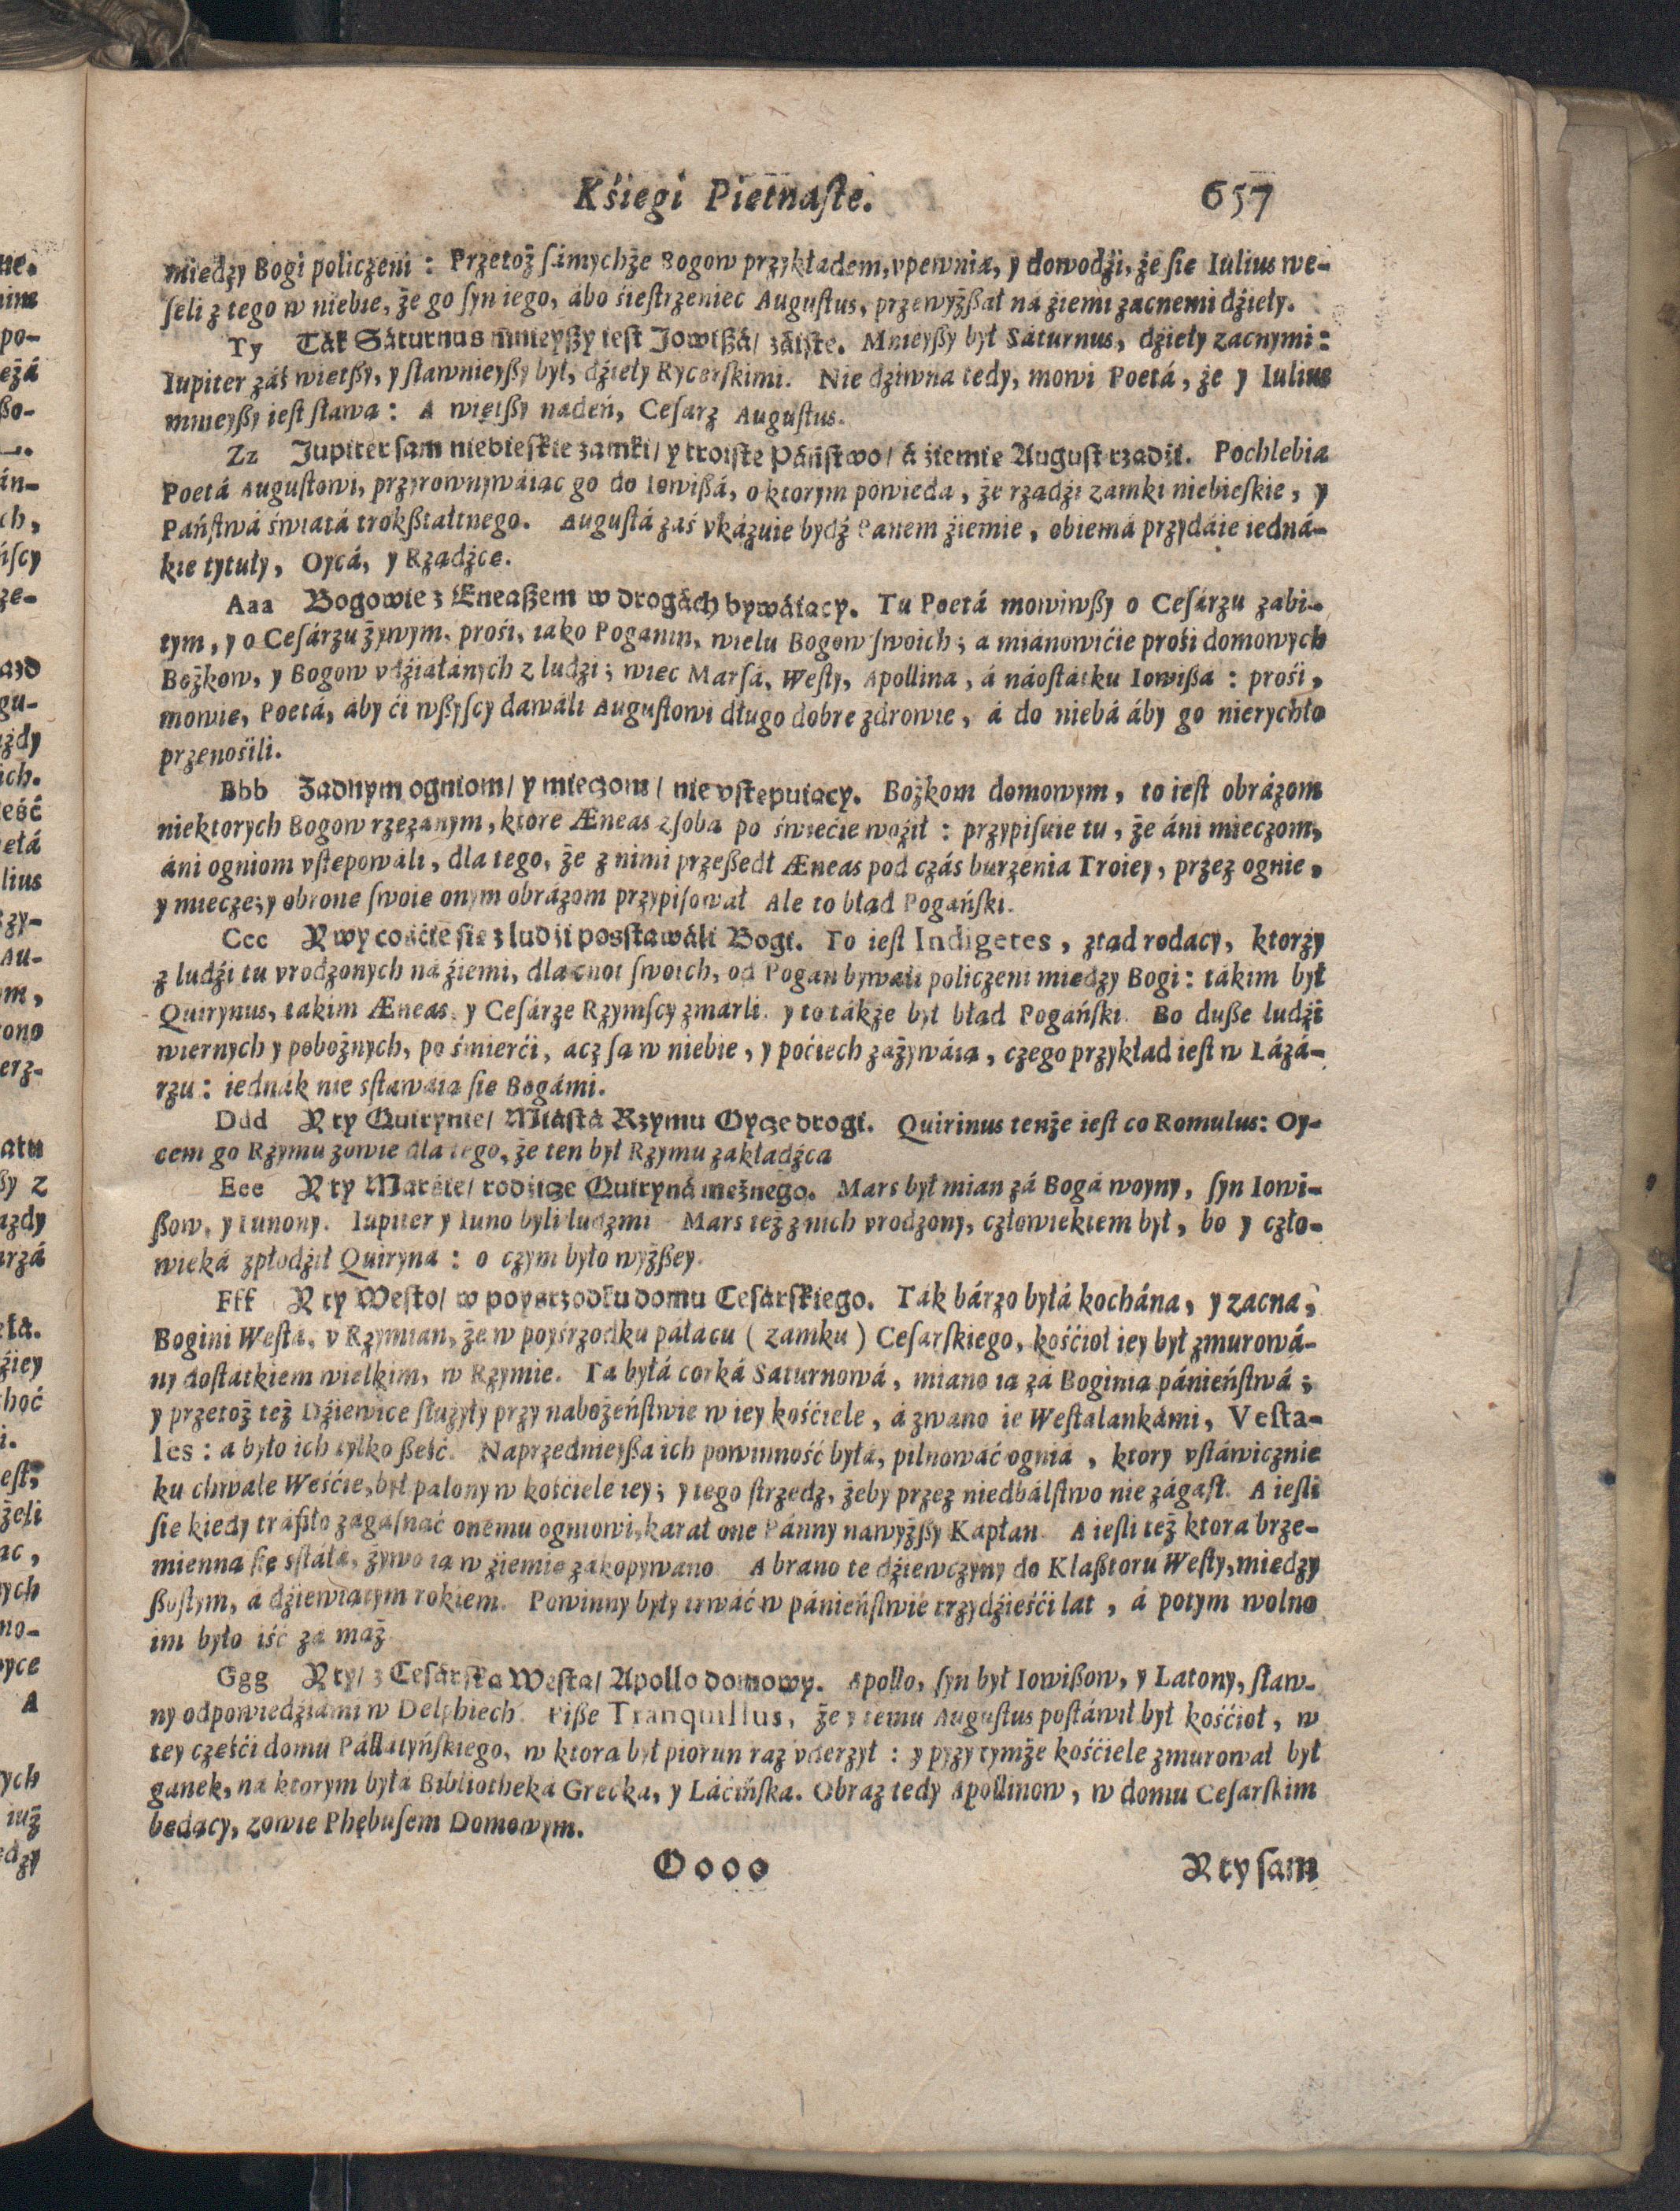 Kśiegi Pietnaſte. 657
miedzy Bogi policzeni : Przetoż ſámychże Bogow przykładem, vpewnia, y dowodźi, że ſie Iulius we-
ſeli z tego w niebie, że go ſyn iego, ábo śieſtrzeniec Auguſtus, przewyżßał ná źiemi zacnemi dźieły.
Ty Ták Sáturnus mnieyßy ieſt Jowißá/ záiſte. Mnieyßy był Saturnus, dźieły zacnymi:
Iupiter záś wietßy, y ſławnieyßy był, dźieły Rycerſkimi. Nie dziwna tedy, mowi Poetá, że y Iulius
mnieyßy ieſt ſława : A wietßy nadeń, Ceſarz Auguſtus.
Zz Jupiter ſam niebieſkie zamki/ y troiſte Páńſtwo/ á źiemie Auguſt rzadźi. Pochlebia
Poetá Auguſtowi, przyrownywáiac go do Iowißá, o ktorym powieda, że rządźi zamki niebieſkie, y
Páńſtwá świátá trokßtałtnego. Auguſtá zaś vkázuie bydź Panem źiemie, obiemá przydáie iedná-
kie tytuły, Oycá, y Rzadźce.
Aaa Bogowie z Eneaßem w drogách bywáiacy. Tu Poetá mowiwßy o Ceſárzu zabi-
tym, y o Ceſárzu żywym, prośi, iako Poganin, wielu Bogow ſwoich ; a mianowićie prośi domowych
Bożkow, y Bogow vdźiałánych z ludzi ; wiec Marſá, Weſty, Apollina, á náoſtátku Iowißa : prośi,
mowie, Poetá, áby ći wßyſcy dawáli Auguſtowi długo dobre zdrowie, á do niebá áby go nierychło
przenośili.
Bbb Żadnym ogniom/ y mieczom/ nie vſtepuiacy. Bożkom domowym, to ieſt obrázom
niektorych Bogow rzezanym, ktore Æneas z ſoba po świećie woźił : przypiſuie tu, że áni mieczom,
áni ogniom vſtepowáli, dla tego, że z nimi przeßedł Æneas pod czás burzenia Troiey, przez ognie,
y miecze; y obrone ſwoie onym obrázom przypiſował Ale to bład Pogáńſki.
Ccc Y wy cośćie ſie z ludźi posſtawáli Bogi. To ieſt Indigetes, ztad rodacy, ktorzy
z ludźi tu vrodzonych ná źiemi, dla cnot ſwoich, od Pogan bywali policzeni miedzy Bogi : tákim był
Quirynus, takim Æneas, y Ceſárze Rzymſcy zmárli. y to tákże był bład Pogáńſki. Bo duße ludźi
wiernych y pobożnych, po śmierći, acz ſa w niebie, y poćiech zażywáia, czego przykład ieſt w Lázá-
rzu : iednák nie sſtawáia ſie Bogámi.
Ddd Y ty Quirynie/ Miáſtá Rzymu Oycze drogi. Quirinus tenże ieſt co Romulus: Oy-
cem go Rzymu zowie dla tego, że ten był Rzymu zakładźca
Eee Y ty Marśie/ rodźicze Quiryná meżnego. Mars był mian zá Bogá woyny, ſyn Iowi-
ßow, y Iunony. Iupiter y Iuno byli ludzmi Mars też z nich vrodzony, człowiekiem był, bo y czło-
wieká zpłodźił Quiryna : o czym było wyżßey.
Fff Y ty Weſto/ w poyśrzodku domu Ceſárſkiego. Ták bárzo byłá kochána, y zacna,
Bogini Weſta, v Rzymian, że w poyśrzodku páłacu ( zamku ) Ceſarſkiego, kośćioł iey był zmurowá-
ny doſtatkiem wielkim, w Rzymie. Ta byłá corká Saturnowá, miano ia zá Boginia pánieńſtwá ;
y przetoż też Dźiewice ſłużyły przy nabożeńſtwie w iey kośćiele, á zwano ie Weſtalankámi, Veſta-
les : a było ich tylko ßeść. Naprzednieyßa ich powinność była, pilnowáć ogniá, ktory vſtáwicznie
ku chwale Weśćie, był palony w kościele iey ; y tego ſtrzedz, żeby przez niedbálſtwo nie zágaſł. A ieſli
ſie kiedy tráfiło zagaſnać onemu ogniowi, karał one Pánny nawyżßy Kapłan A ieſli też ktora brze-
mienna ſie sſtáłá, żywo ia w źiemie zákopywano A brano te dźiewczyny do Klaßtoru Weſty, miedzy
ßoſtym, á dźiewiatym rokiem. Powinny były trwáć w pánieńſtwie trzydźieśći lat, á potym wolno
im było iść za maż
Ggg Y ty/ z Ceſárſka Weſta/ Apollo domowy. Apollo, ſyn był Iowißow, y Latony, ſław-
ny odpowiedźiámi w Delphiech. Piße Tranquillus, że y temu Auguſtus poſtáwił był kośćioł, w
tey cześći domu Pállatyńſkiego, w ktora był piorun raz vderzył : y przy tymże kośćiele zmurował był
ganek, na ktorym była Bibliotheká Grecka, y Láćińſka. Obraz tedy Apollinow, w domu Ceſarſkim
bedacy, zowie Phębuſem Domowym.
Oooo Y ty ſam